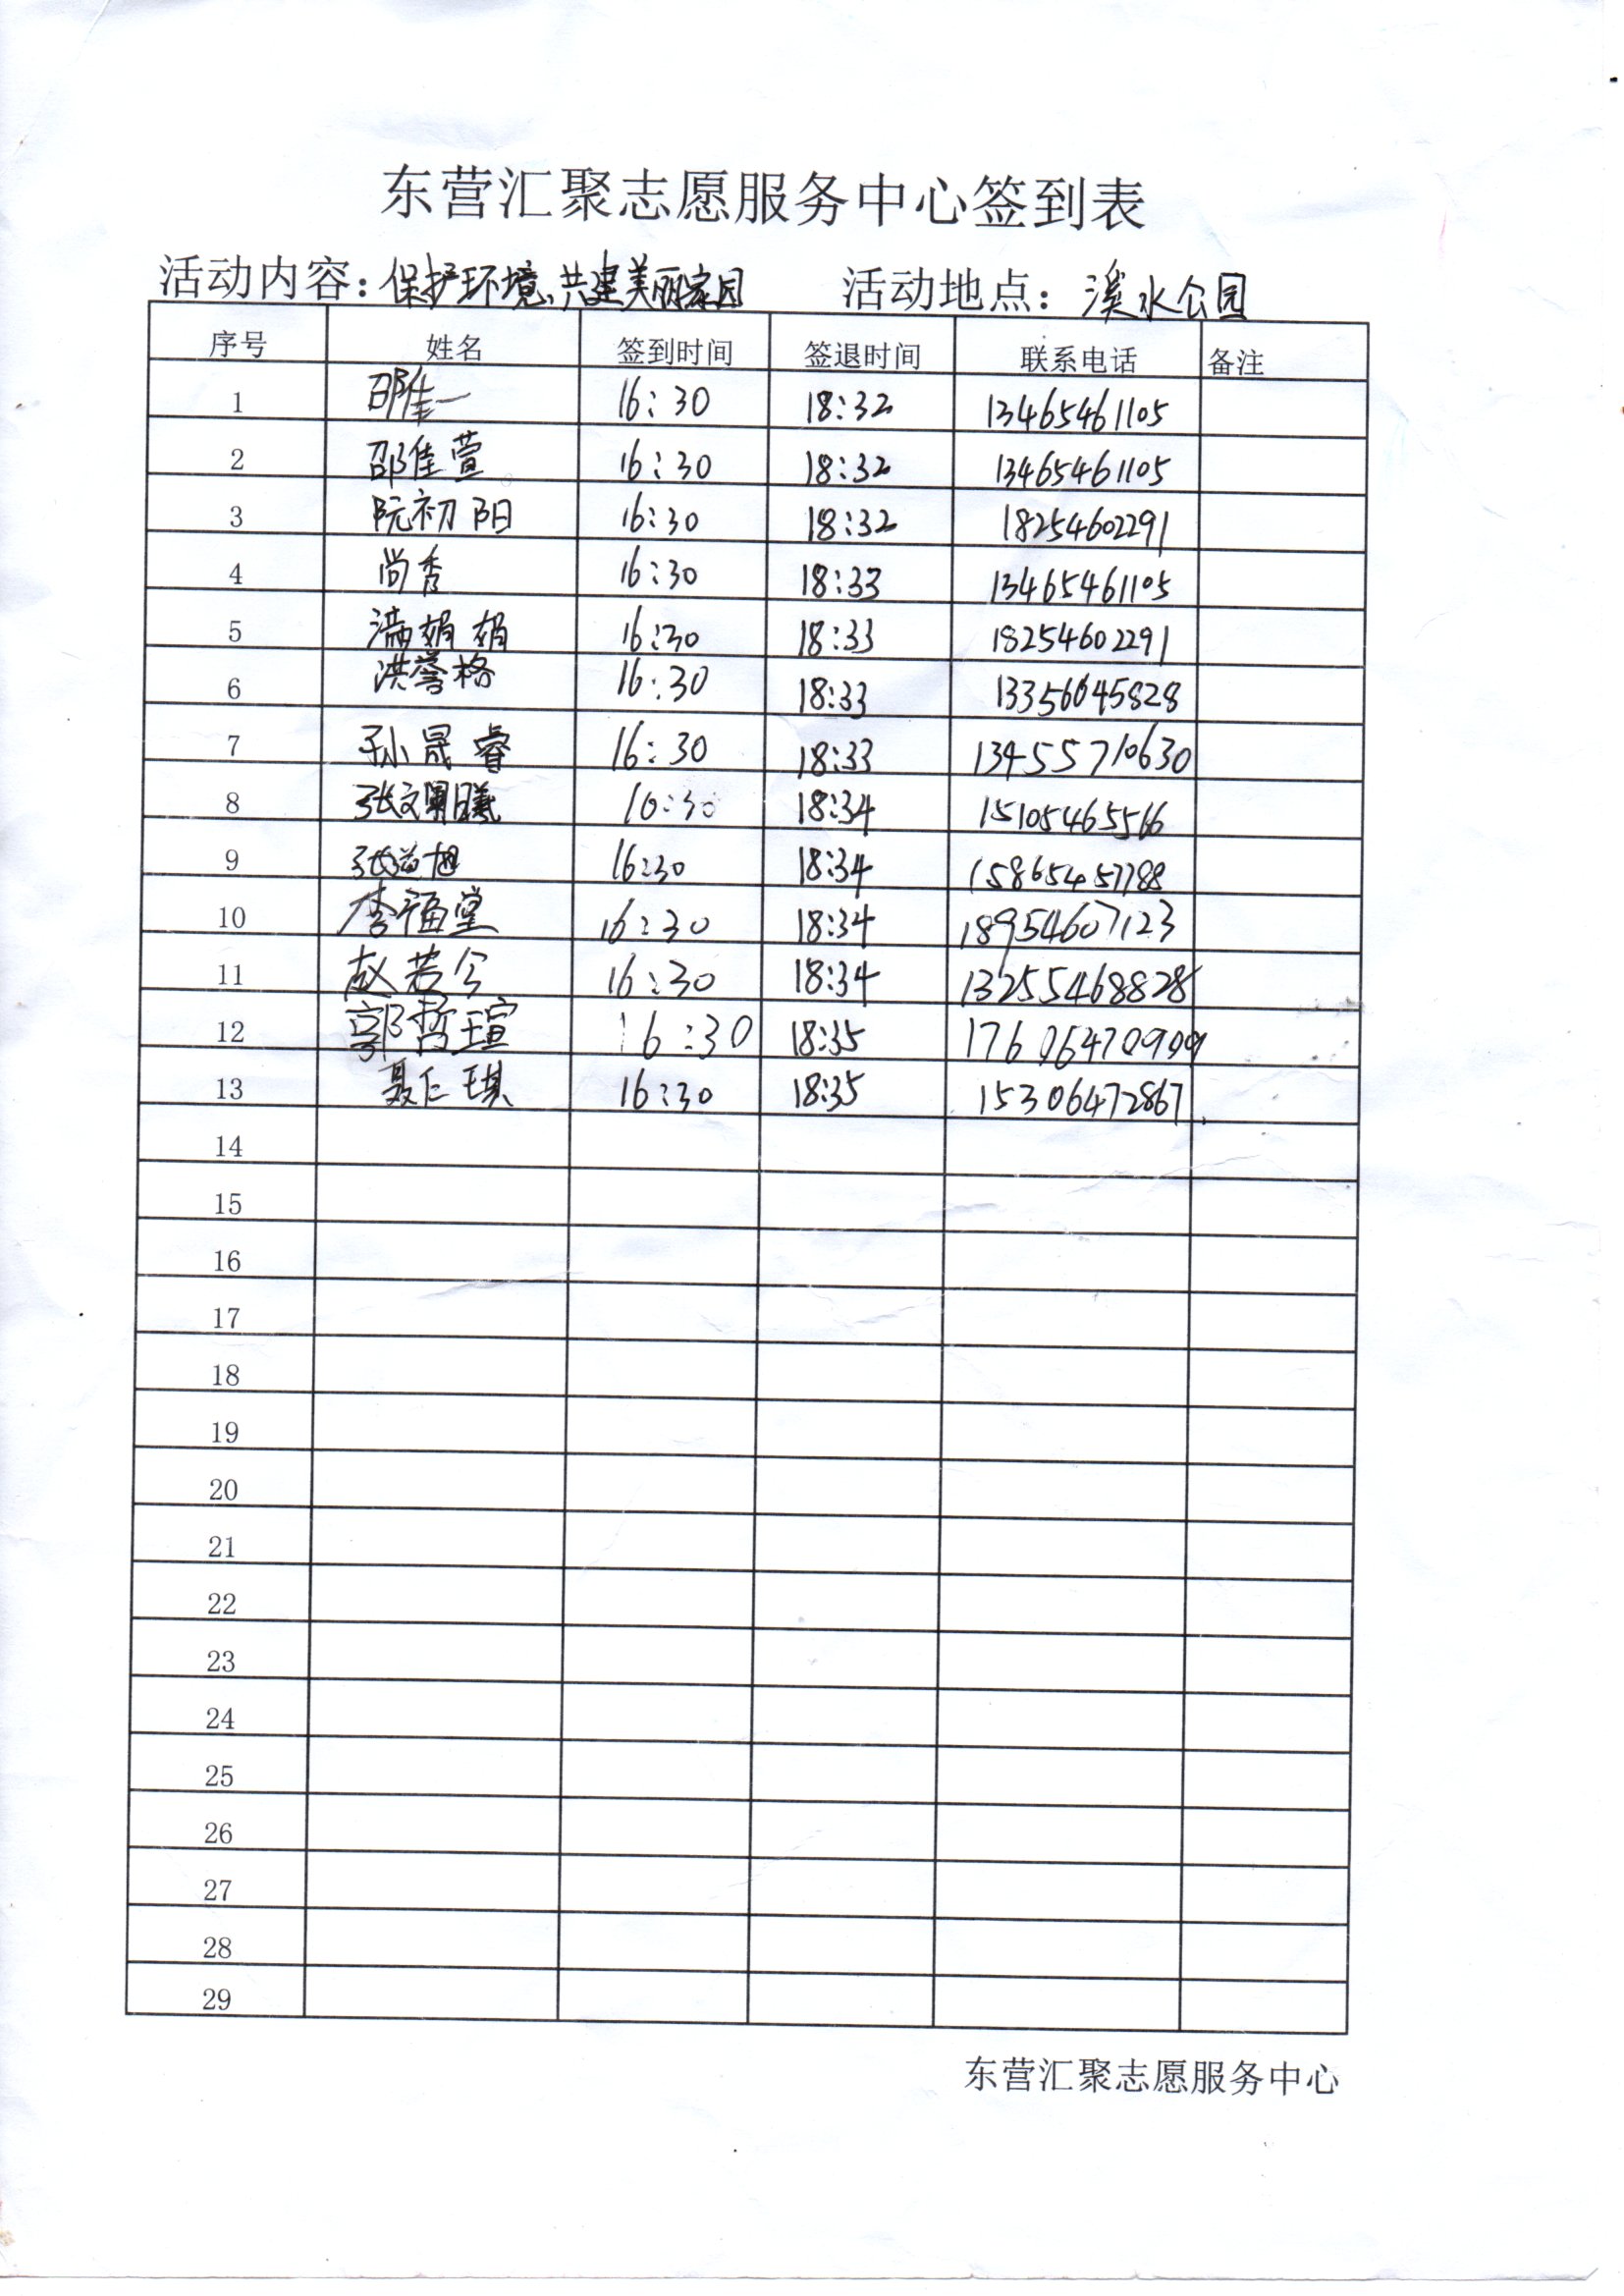 东营汇聚志愿服务中心签到表
活动内容：保护环境、共建美丽家园 活动地点：溪水公园
序号 姓名 签到时间 签退时间 联系电话 备注
1 邵佳一 16:30 18:32 13465461105
2 邵佳萱 16:30 18:32 13465461105
3 阮初阳 16:30 18:32 18254602291
4 尚秀 16:30 18:33 13465461105
5 满娟娟 16:30 18:33 18254602291
6 洪誉格 16:30 18:33 13356645828
7 孙晟睿 16:30 18:33 13455710630
8 16:30 18:34 15105465566
9 16:30 18:34 15865457788
10 李福堂 16:30 18:34 18954607123
11 赵若今 16:30 18:34 13255468828
12 郭哲瑄 16:30 18:35 17606470909
13 聂仁琪 16:30 18:35 15306472867
14
15
16
17
18
19
20
21
22
23
24
25
26
27
28
29
东营汇聚志愿服务中心